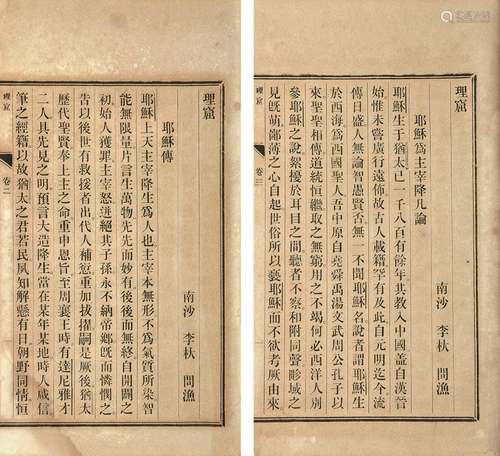 理窟
耶穌為主宰降凡論
南沙 李杕 問漁
耶穌生于猶太已一千八百有餘年其教入中國蓋自漢晉
始惟未嘗廣行遠佈故古人載籍罕有及此自元明迄今流
傳日盛人無論智愚賢否無一不聞耶穌名說者謂耶穌生
於西海為西國聖人吾中原自堯舜禹湯文武周公孔子以
來聖聖相傳道統恒繼取之無窮用之不竭何必西洋人別
參耶穌之說縈擾於耳目之間聽者不察和附同聲畛域之
見旣萌鄙薄之心自起世俗所以褻耶穌而不欲考厥由來
理窟 卷三
理窟
耶穌傳
南沙 李杕 問漁
耶穌上天主宰降生為人也主宰本無形不為氣質所染智
能無限量片言生萬物先先而妙有後後而無終自開闢之
初始人獲罪主宰怒迸絕其子孫永不納帝鄉旣而憐憫之
告以後世有救援者出代人補愆重加拔擢嗣是厥後猶太
歷代聖賢奉上主之命重申恩旨至周襄王時有達尼雅才
二人具先見之明預言大造降生當在某年某地時人咸信
筆之經籍以故猶太之君若民夙知解懸有日朝野同情恒
理窟 卷二